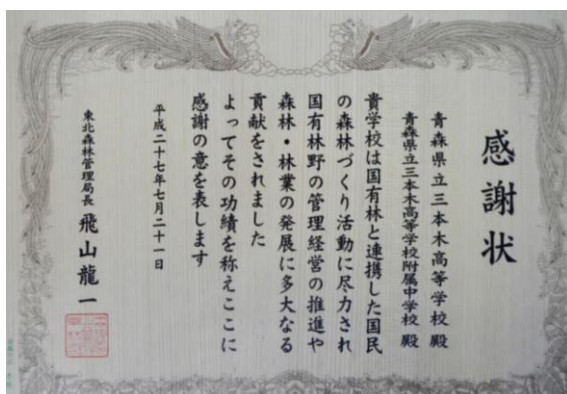 感謝状
青森県立三本木高等学校 殿
青森県立三本木高等学校附属中学校 殿
貴学校は国有林と連携した国民
の森林づくり活動に尽力され
国有林野の管理経営の推進や
森林・林業の発展に多大なる
貢献をされました
よってその功績を称えここに
感謝の意を表します
平成二十七年七月二十一日
東北森林管理局長 飛山龍一